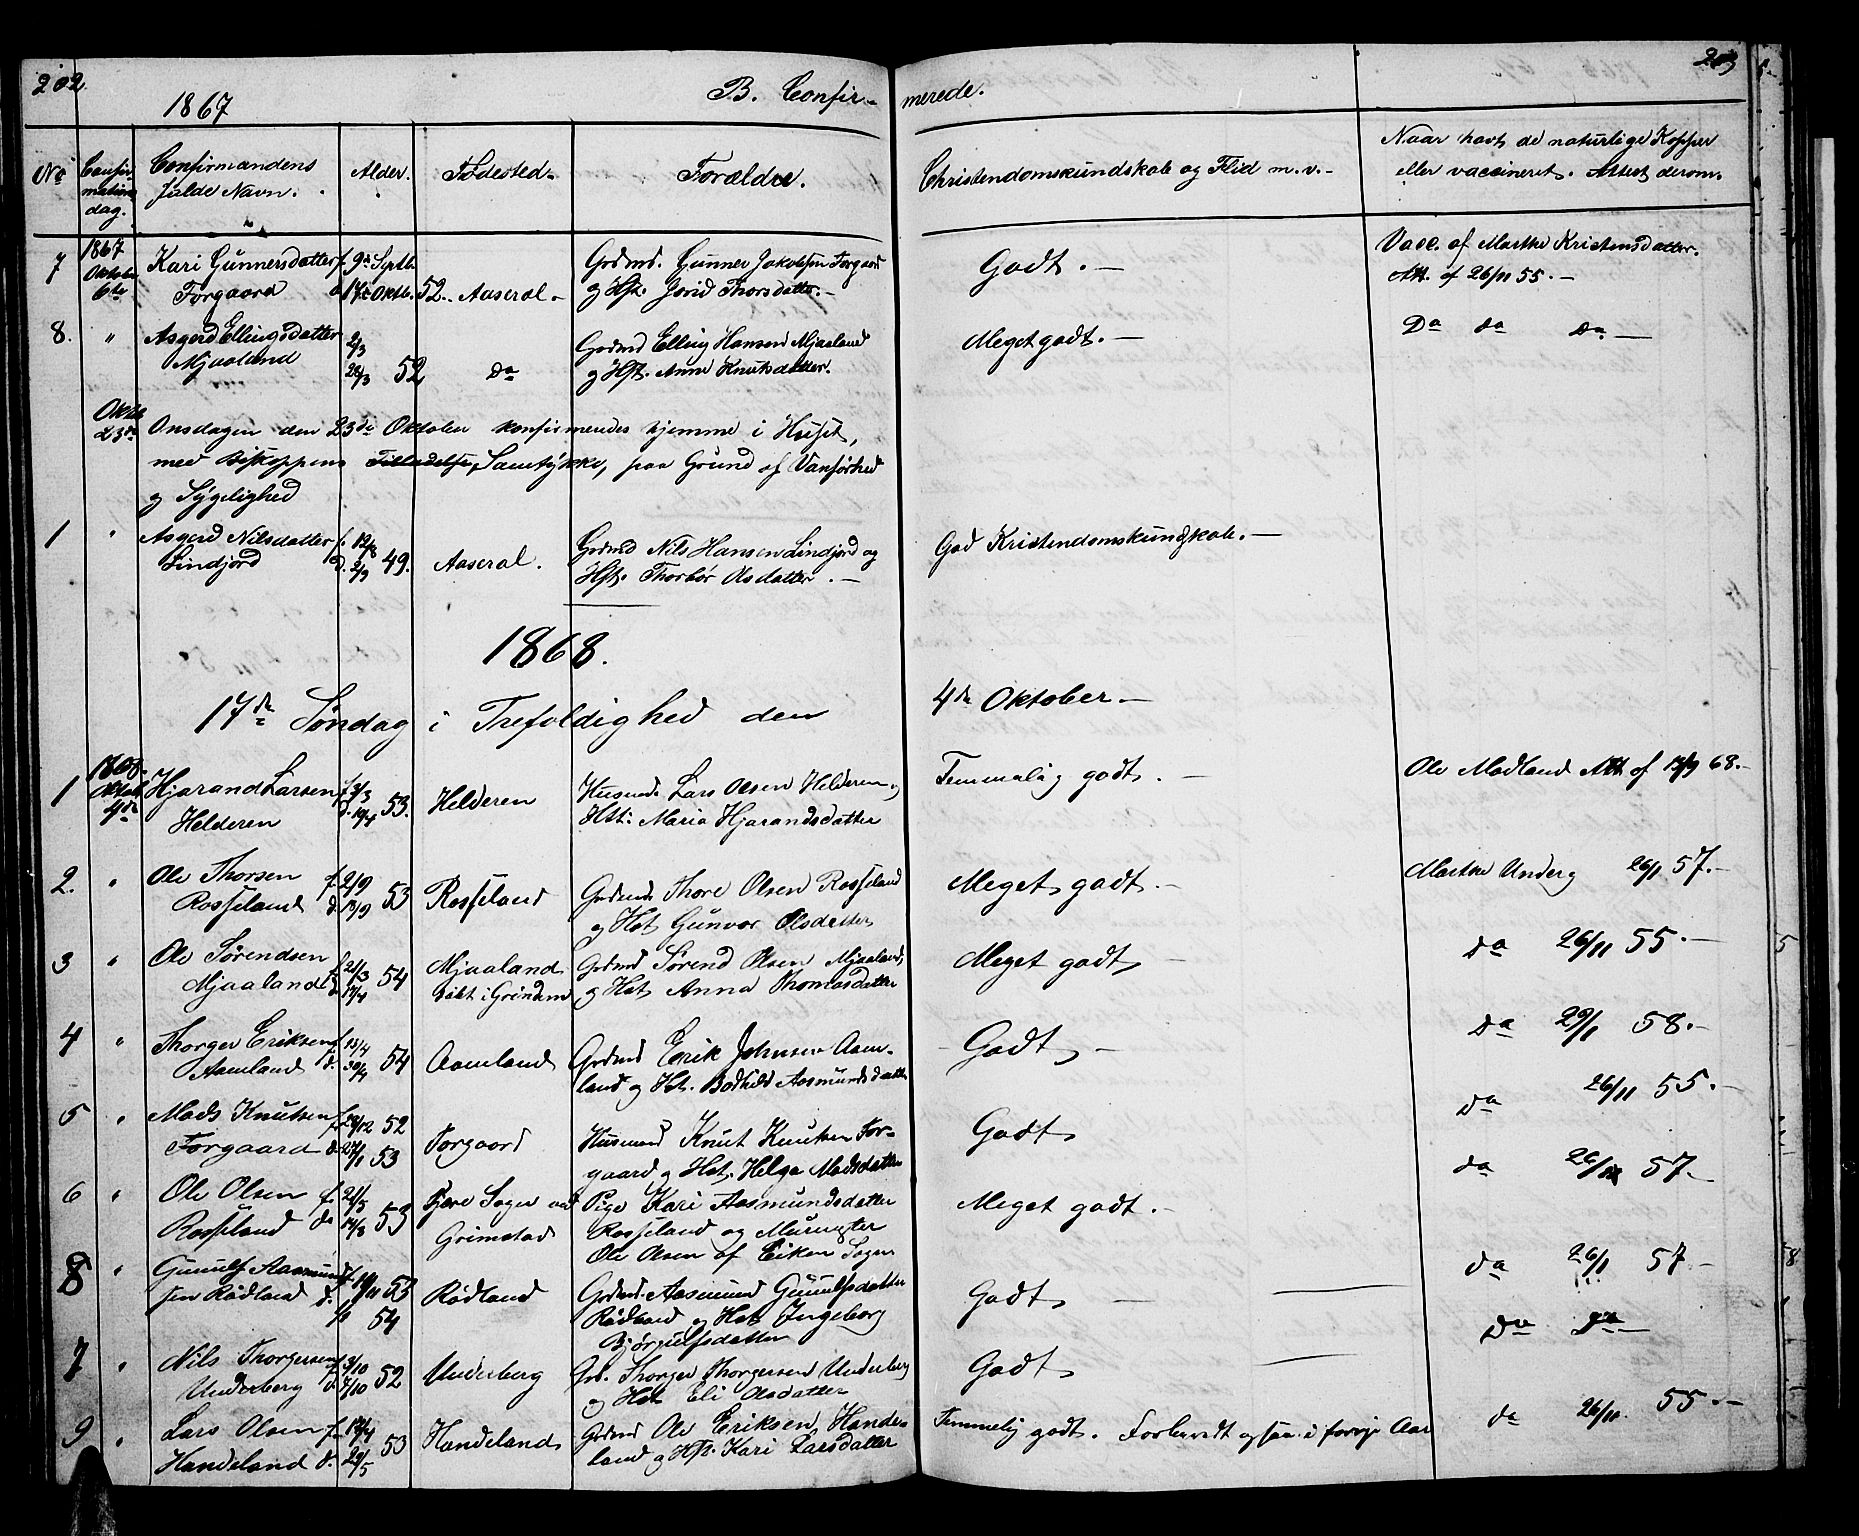 202
203
1867
B. Confir-
merede.
No
Confir-
mations
dag.
Confirmandens
fulde Navn.
Alder.
Fødested.
Forældre.
Christendomskundskab og Flid m. v.
Naar havt de naturlige Kopper
eller vaccineret. Attest derom.
7
1867
Oktober
6te
Kari Gunnersdatter
Forgaard
f. 9de Septb.
17de Oktb. 52.
Aaseral
Grdmd. Gunner Jakobsen Forgaard
og Hst. Jorid Thorsdatter.
Godt.
Vacc. af Marthe Kristensdatter.
Att. af 26/11 55.
8.
"
Asgerd Ellingsdatter
Mjaaland
2/3
28/3 52
Da
Grdmd Elling Hansen Mjaaland
og Hst. Anne Knutsdatter.
Meget godt.
Da da Da
Oktb
23de
Onsdagen den 23de Oktober konfirmeredes hjemme i Huset,
med Biskoppens Tilladelse, Samtykke, paa Grund af Vanførhed
og Sygelighed
1
"
Asgerd Nilsdatter
Lindjord
f. 12/8
d. 2/9 49.
Aaseral.
Grdmd Nils Hansen Lindjord og
Hst. Thorbør Olsdatter.
God Kristendomskundskab.
1868.
17de Søndag i Trefoldighed den
4de Oktober.
1
1868
Oktob
4de
Hjarand Larsen
Helderen
f. 3/3
d. 19/4 53.
Helderen
Husmd. Lars Olsen Helderen og
Hst: Maria Hjarandsdatter
Temmelig godt.
Ole Modland Att af 12/9 68.
2.
"
Ole Thorsen
Rosseland
f. 2/9
d. 13/9 53
Rosseland
Grdmd. Thore Olsen Rosseland
og Hst Gunvor Olsdatter
Meget godt.
Marthe Underg 26/1 57.
3
"
Ole Sørendsen
Mjaaland
f. 21/3
d. 17/4 54
Mjaaland
døbt i Grindem
Grdmd Sørend Olsen Mjaaland,
og Hst Anna Thomasdatter
Meget godt,
da 26/11 55.
4
"
Thorger Eriksen
Aamland
f. 13/4
d. 30/4 54
Aamland
Grdmd Erik Johnsen Aam-
land og Hst. Bodhild Aasmundsdatter
Godt,
da 29/1 58.
5
"
Mads Knutsen
Forgaard
f. 29/12 52
d. 27/1 53
Forgaard
Husmand Knut Knutsen For-
gaard og Hst. Helga Madsdatter
Godt,
da 26/11 55.
6
"
Ole Olsen
Rosseland
f. 21/5
da 14/8 53
Fjære Sogn ved
Grimstad
Pige Kari Aasmundsdatter
Rosseland og Murmester
Ole Olsen af Eiken Sogn
Meget godt.
da 26/11 57.
8
"
Gunulf Aasmund
sen Rødland
f. 19/11 53
d. 1/1 54
Rødland
Grdmd. Aasmund Gunulfsdatter
Rødland og Hst Ingeborg
Bjørgulfsdatter
Godt,
da 26/1 57
7
"
Nils Thorgersen
Underberg
f. 3/10
d. 7/10 52
Underberg
Grb. Thorger Thorgersen Underberg
og Hst Eli Olsdatter
Godt,
Da Da
9
"
Lars Olsen
Handeland
f. 12/4
d. 29/5 53
Handeland
Grdmd Ole Eriksen Hande-
land og Hst. Kari Larsdatter
Temmelig godt. Forberedt ogsaa i forrige Aar
da 26/11. 55.